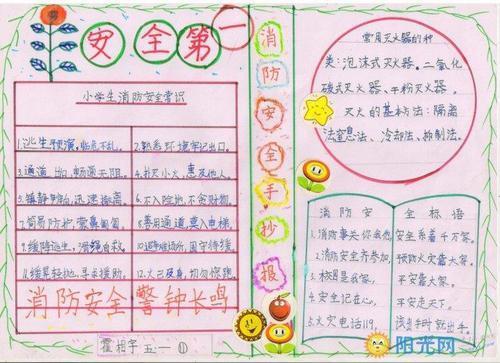 安全第一
小学生消防安全常识
1.逃生预演,临危不乱。 2.熟悉环境,牢记出口。
3.通道出口,畅通无阻。 4.扑灭小火,惠及他人。
5.镇静辨向,迅速撤离。 6.不入险地,不贪财物。
7.简易防护,蒙鼻匍匐。 8.善用通道,莫入电梯。
9.缓降逃生,滑绳自救。 10.避难场所,固守待援。
11.缓晃轻抛,寻求援助。 12.火已及身,切勿惊跑。
消防安全 警钟长鸣
五一①
消防安全手抄报
常见灭火器的种
类:泡沫式灭火器、二氧化
碳式灭火器、干粉灭火器。
灭火的基本方法:隔离
法、窒息法、冷却法、抑制法。
消防安全标语
1.消防事关你我他,安全系着千万家。
2.消防安全齐参加,预防火灾靠大家。
3.
平安靠大家。
4.安全记在心,平安走天下。
5.火灾电话119,
时就出手。
阳光网